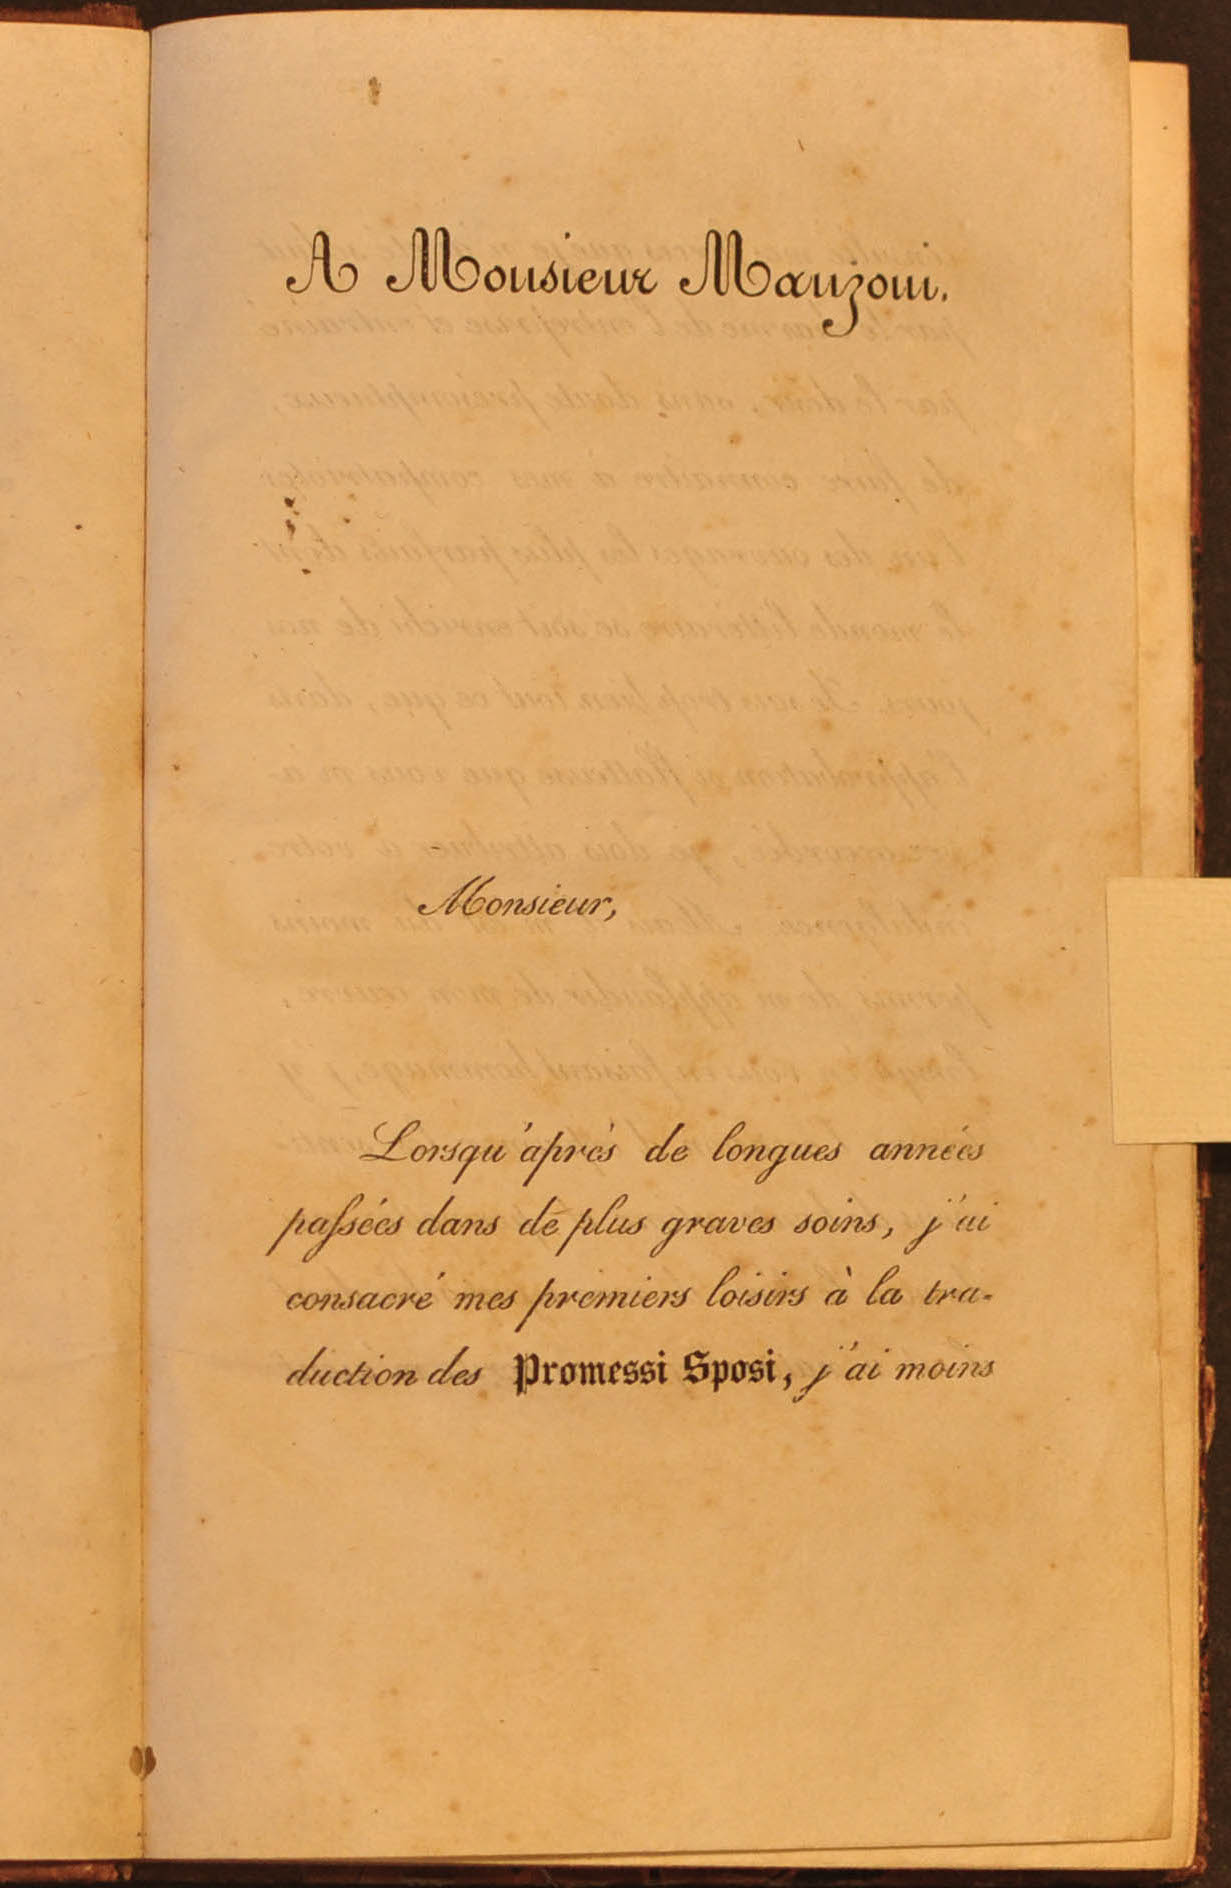 A Monsieur Manzoni.
Monsieur,
Lorsqu'après de longues années
passées dans de plus graves soins, j'ai
consacré mes premiers loisirs à la tra-
duction des Promessi Sposi, j'ai moins